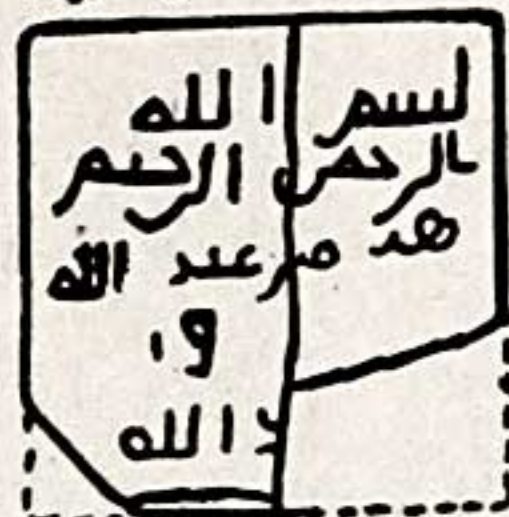 لبسم الله
الرحمن الرحيم
هد من عبد الله
و ا
د الله